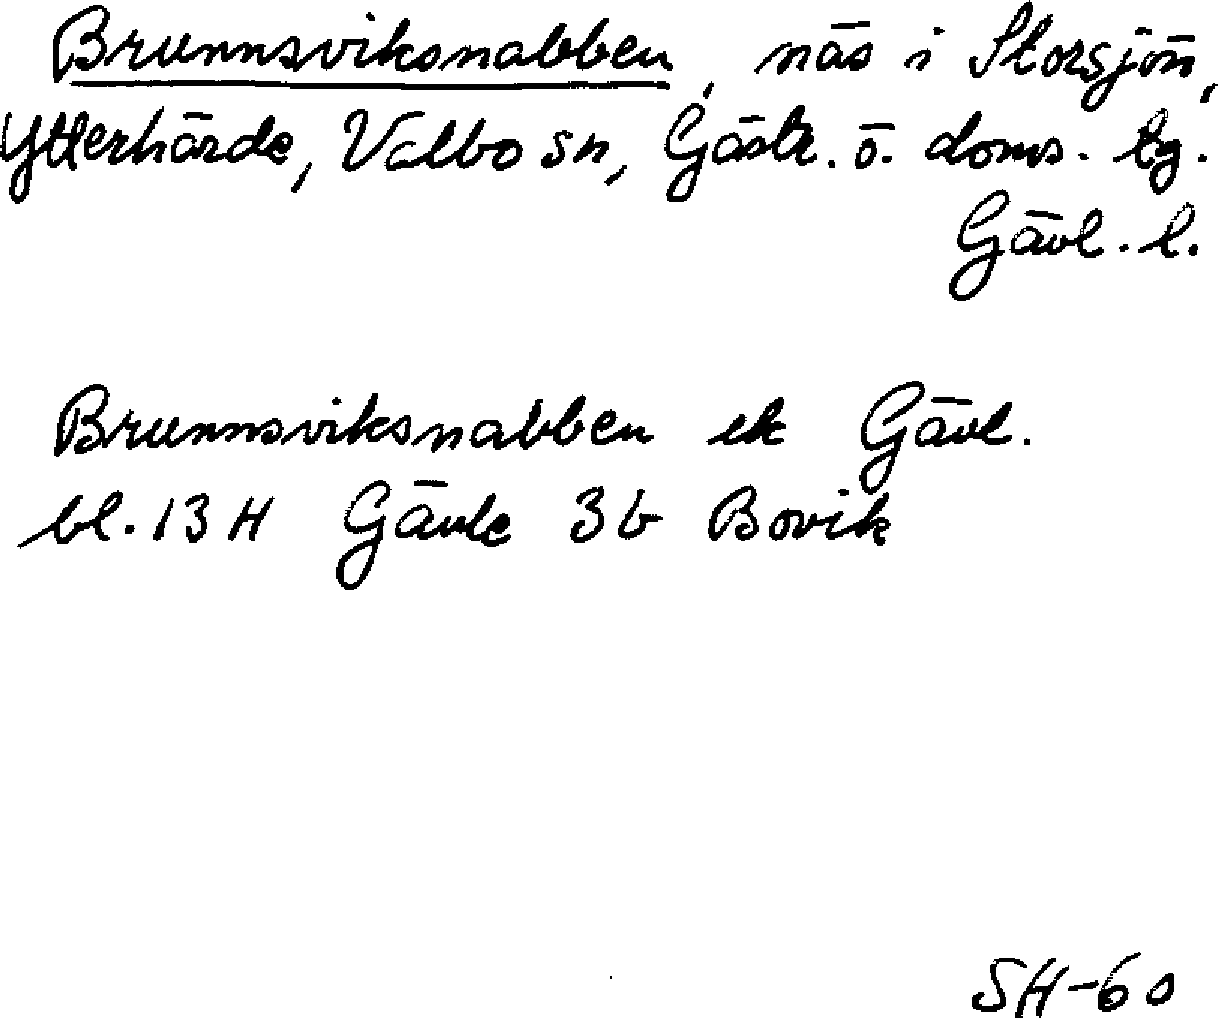 Brunnsviksnabben, näs i Storsjön,
Ytterhärde, Valbo sn, Gästr. ö. doms. tg.
Gävl. l.
Brunnsviksnabben ek Gävl.
bl. 13 H Gävle 3b Bovik
SH-60